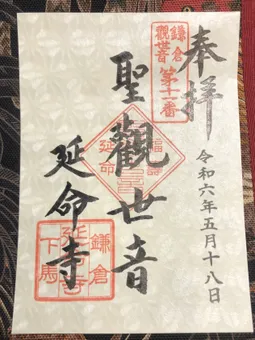 奉拝
鎌倉
觀世音
第十一番
令和六年五月十八日
聖觀世音
延命
延命寺
鎌倉
延命寺
下馬